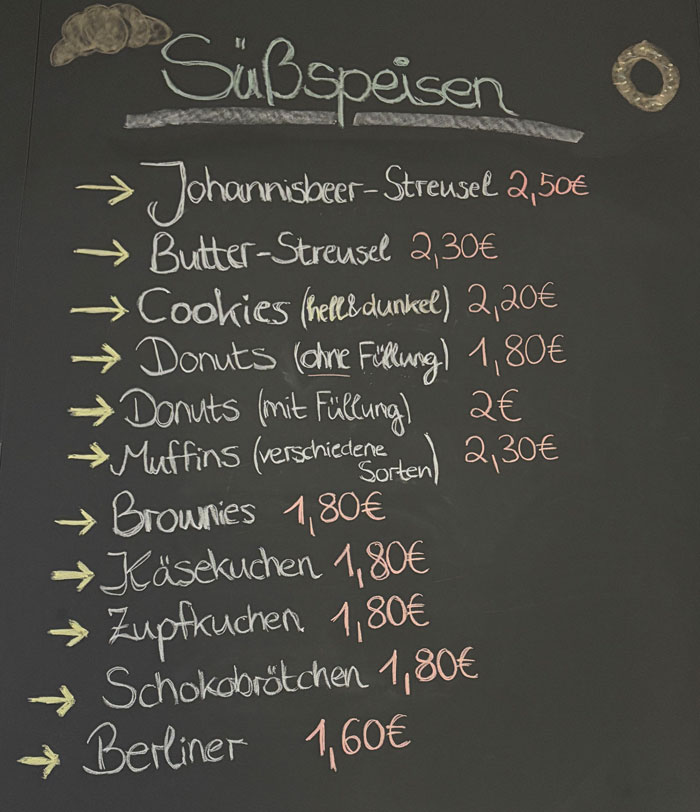 Süßspeisen
→ Johannisbeer-Streusel 2,50€
→ Butter-Streusel 2,30€
→ Cookies (hell&dunkel) 2,20€
→ Donuts (ohne Füllung) 1,80€
→ Donuts (mit Füllung) 2€
→ Muffins (verschiedene 2,30€
Sorten)
→ Brownies 1,80€
→ Käsekuchen 1,80€
→ Zupfkuchen 1,80€
→ Schokobrötchen 1,80€
→ Berliner 1,60€